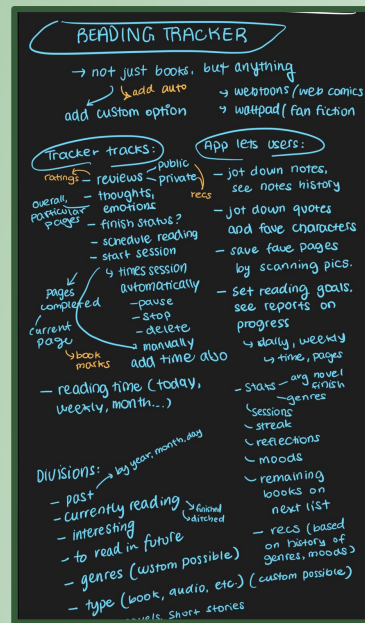 READING TRACKER
→ not just books, but anything
add auto
add custom option
webtoons/web comics
wattpad/fan fiction
Tracker tracks:
ratings
- reviews
public
private
recs
overall,
particular
pages
- thoughts,
emotions
- finish status?
- schedule reading
- start session
↳ times session
automatically
- pause
- stop
- delete
manually
add time also
pages
completed
current
page
book
marks
- reading time (today,
weekly, month...)
App lets users:
- jot down notes,
see notes history
- jot down quotes
and fave characters
- save fave pages
by scanning pics.
- set reading goals,
see reports on
progress
↳ daily, weekly
↳ time, pages
- stats
avg novel
finish
genres
sessions
streak
reflections
moods
remaining
books on
next list
- recs (based
on history of
genres, moods)
DIVISIONS:
- past
by year, month, day
- currently reading
finished
ditched
- interesting
- to read in future
- genres (custom possible)
- type (book, audio, etc.) (custom possible)
short stories